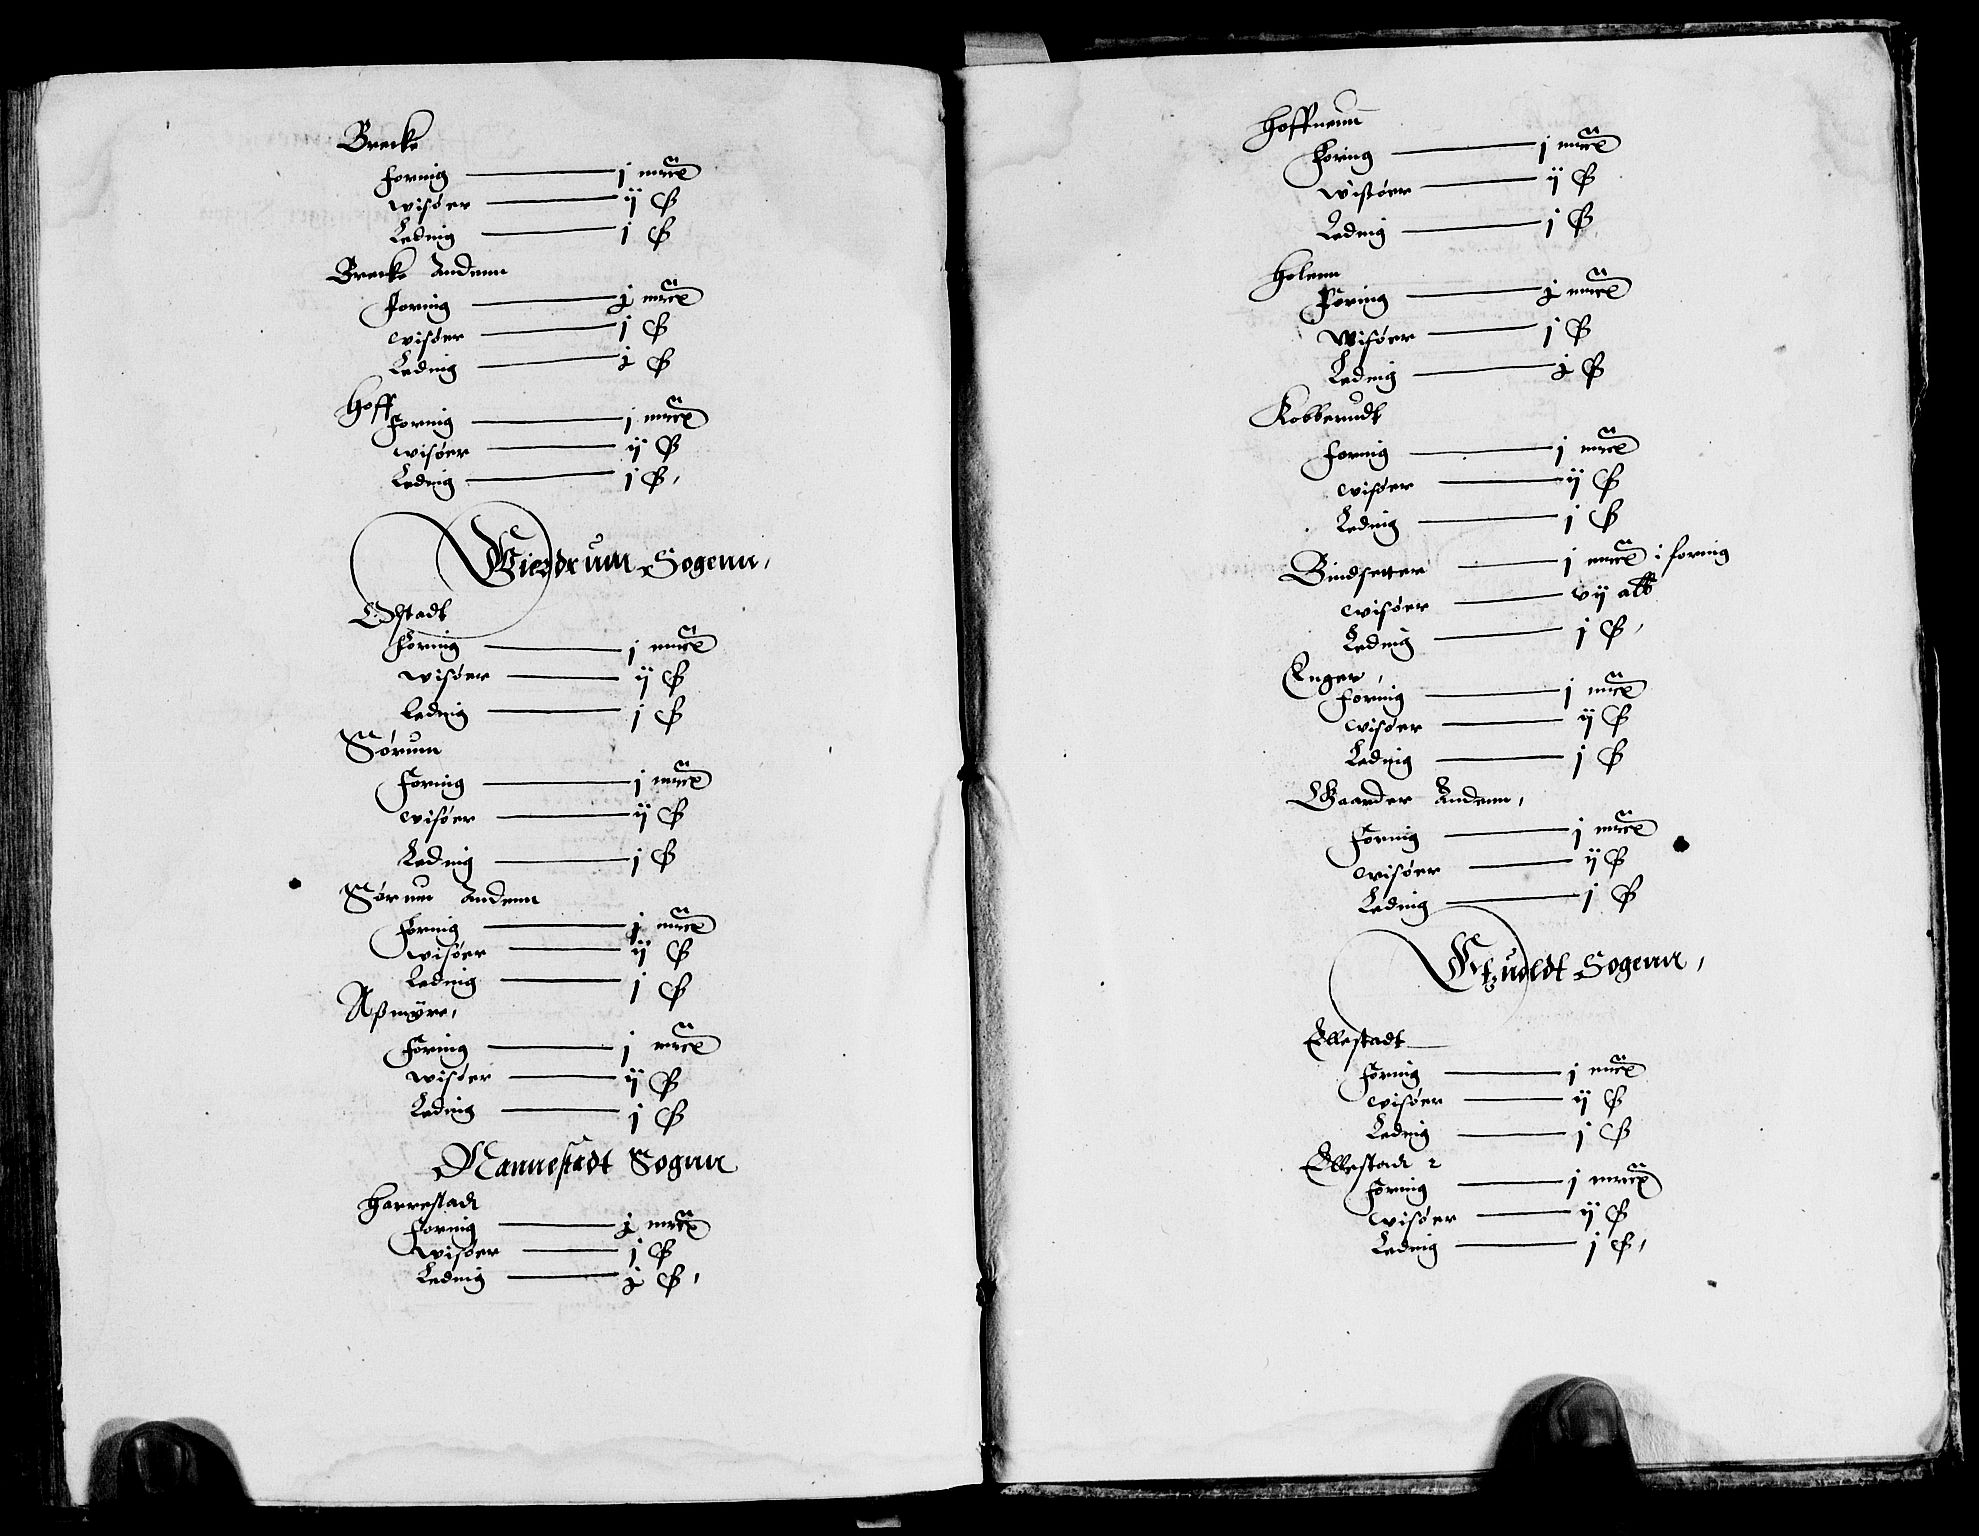 Brecke
Foring j mrck
wisøer ij ß
Leding j ß
Brecke Andenn
Foring j mrck
wisøer j ß
Leding j ß
Hoff
Foring j mrck
wisøer ij ß
Leding j ß,
Sogenn,
Foring j mrck
wisøer ij ß
Leding j ß
Sørum
Foring j mrck
wisøer ij ß
Leding j ß
Sørum Andenn
Foring j mrck
wisøer ij ß
Leding j ß
Aßmyre,
Foring j mrck
wisøer ij ß
Leding j ß
Nannestadt Sognn
Harrestad
Foring j mrck
wisøer j ß
Leding j ß,
Hoffnenn
Foring j mrck
wisøer ij ß
Leding j ß,
Holenn
Foring j mrck
Wisøer j ß
Leding j ß
Kobberudt
Foring j mrck
wisøer ij ß
Leding j ß
Bindsetter j mrck i foring
wisøer vij alb
Leding j ß,
Enger,
Foring j mrck
wisøer ij ß
Leding j ß
Gaarder Andenn,
Foring j mrck
wisøer ij ß
Leding j ß
Sogenn,
Ellestadt
Foring j mrck
wisøer ij ß
Leding j ß
Ellestad 2
Foring j mrck
wisøer ij ß
Leding j ß,